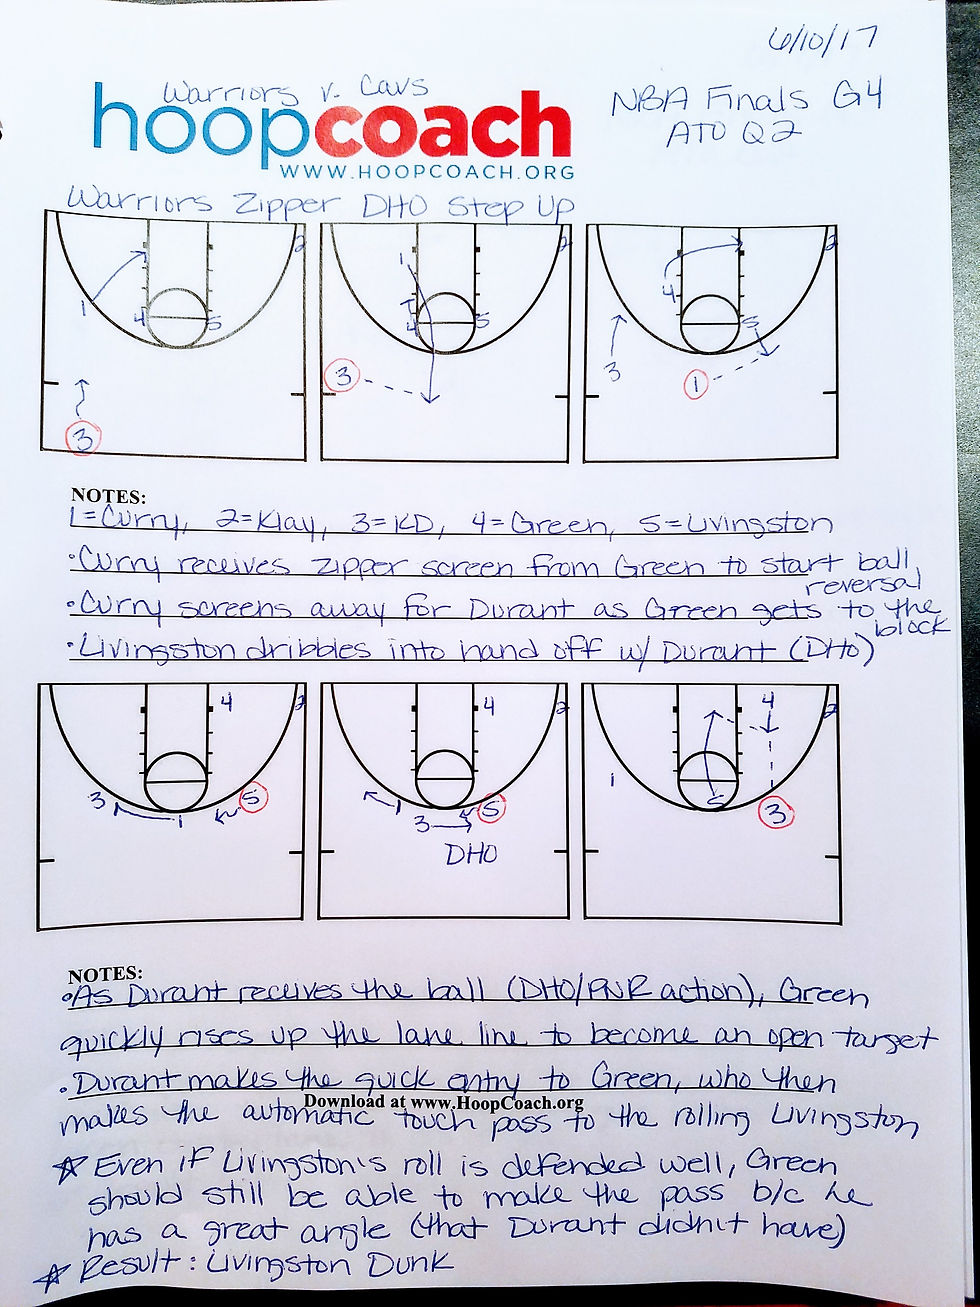 6/10/17
Warriors v. Cavs
NBA Finals G4
ATO Q2
hoopcoach
WWW.HOOPCOACH.ORG
Warriors Zipper DHO Step Up
1 2 4 5 3
1 2 4 5 3
2 4 5 3 1
NOTES:
1=Curry, 2=Klay, 3=KD, 4=Green, 5=Livingston
•Curry receives zipper screen from Green to start ball reversal
•Curry screens away for Durant as Green gets to the block
•Livingston dribbles into hand off w/ Durant (DHO)
4 2 3 5 1
4 2 1 5 3
DHO
4 2 1 5 3
NOTES:
•As Durant receives the ball (DHO/PNR action), Green
quickly rises up the lane line to become an open target
•Durant makes the quick entry to Green, who then
Download at www.HoopCoach.org
makes the automatic touch pass to the rolling Livingston
☆ Even if Livingston's roll is defended well, Green
should still be able to make the pass b/c he
has a great angle (that Durant didn't have)
☆ Result: Livingston Dunk